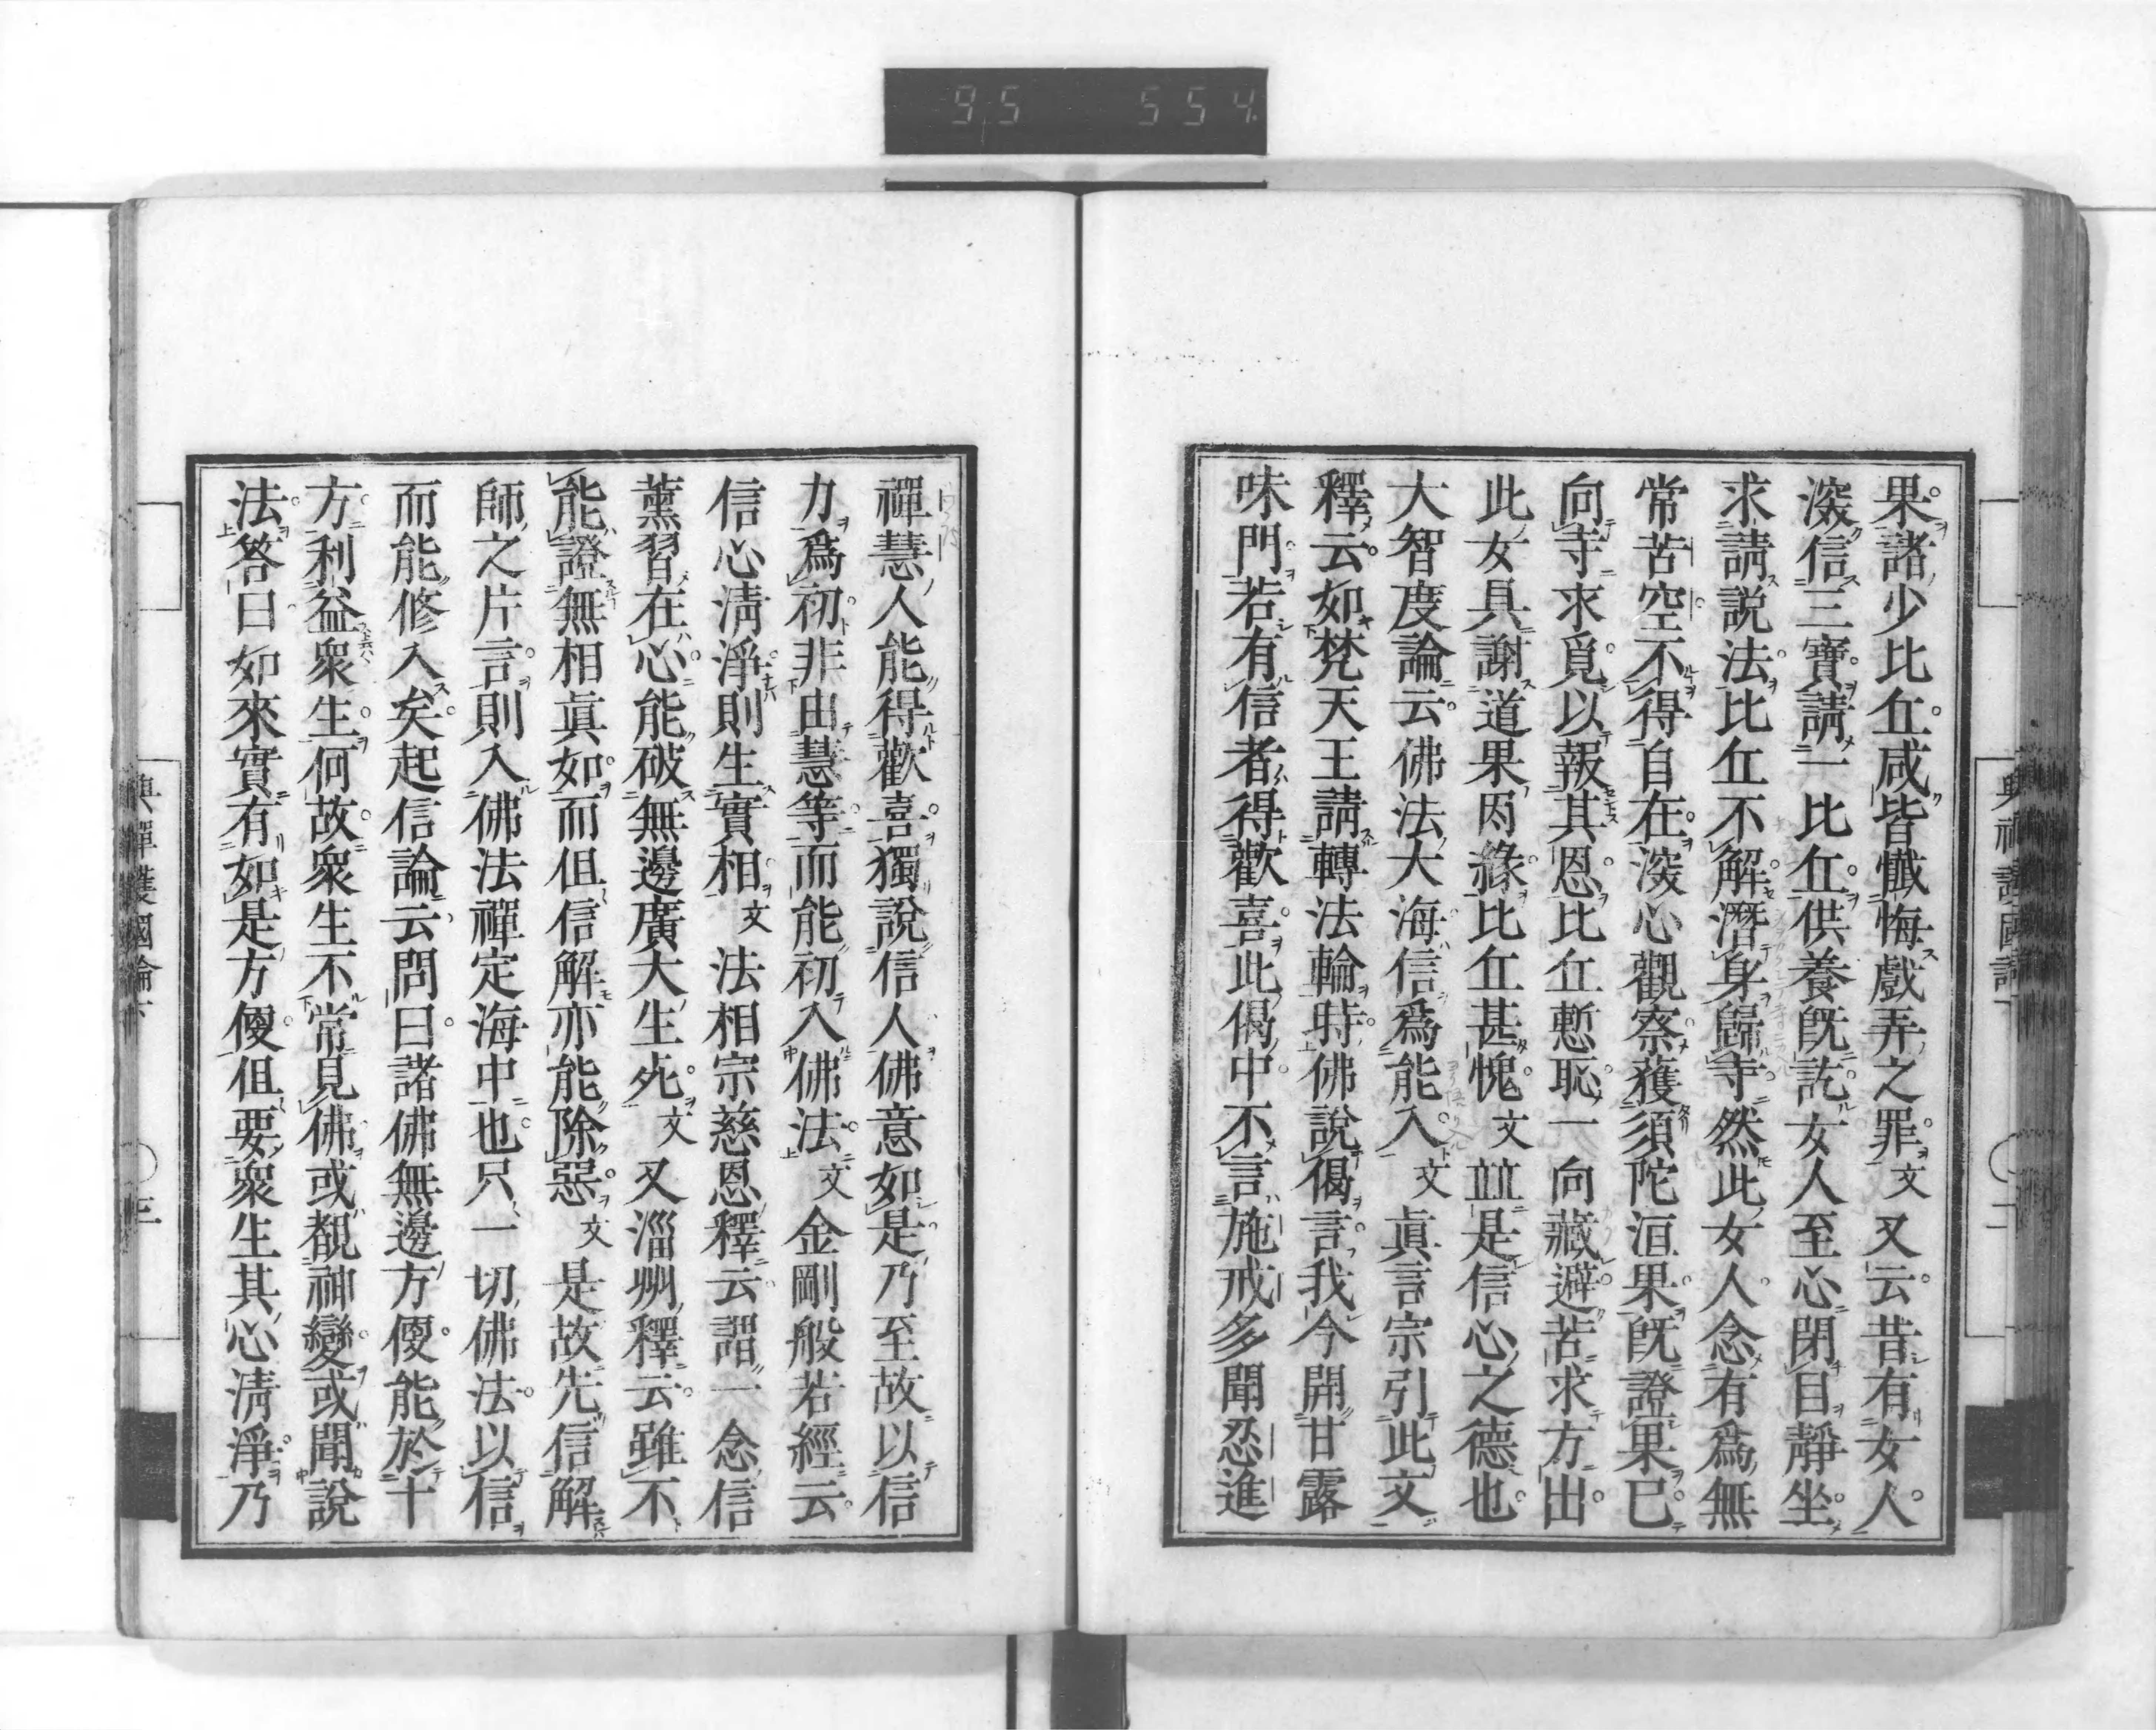 95 554
果諸少比丘咸皆懺悔戲弄之罪文又云昔有女人
深信三寶請一比丘供養既訖女人至心閉目靜坐
求請說法比丘不解潛身歸寺然此女人念有為無
常苦空不得自在深心觀察獲須陀洹果既證果已
向寺求覓以報其恩比丘慙恥一向藏避苦求方出
此女具謝道果因緣比丘甚愧文竝是信心之德也
大智度論云佛法大海信爲能入文眞言宗引此文
釋云如梵天王請轉法輪時佛說偈言我今開甘露
味門若有信者得歡喜此偈中不言施戒多聞忍進
禪慧人能得歡喜獨說信人佛意如是乃至故以信
力爲初非由慧等而能初入佛法文金剛般若經云
信心淸淨則生實相文法相宗慈恩釋云謂一念信
薰習在心能破無邊廣大生死文又淄州釋云雖不
能證無相眞如而但信解亦能除惡文是故先信解
師之片言則入佛法禪定海中也只一切佛法以信
而能修入矣起信論云問曰諸佛無邊方便能於十
方利益衆生何故衆生不常見佛或覩神變或聞說
法答曰如來實有如是方便但要衆生其心淸淨乃
興禪護國論下 三